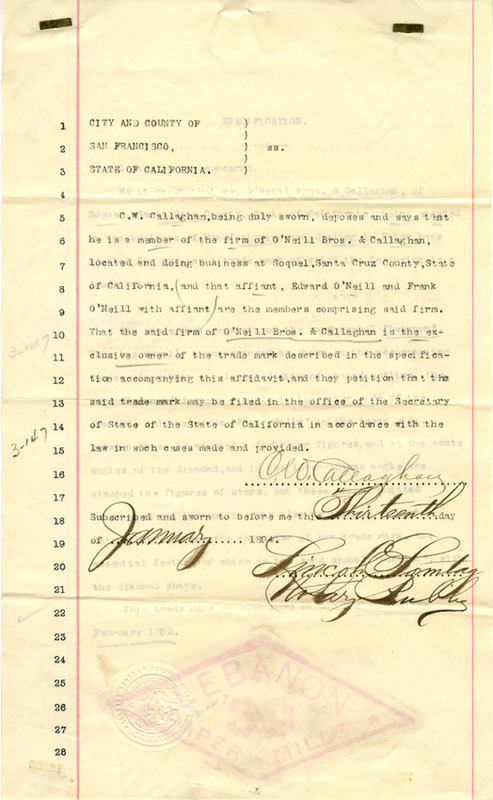 1 CITY AND COUNTY OF )
)
2 SAN FRANCISCO, ) ss.
)
3 STATE OF CALIFORNIA. )
4
5 C.W. Callaghan, being duly sworn, deposes and says that
6 he is a member of the firm of O'Neill Bros. & Callaghan,
7 located and doing business at Soquel, Santa Cruz County, State
8 of California, (and that affiant, Edward O'Neill and Frank
9 O'Neill with affiant) are the members comprising said firm.
10 That the said firm of O'Neill Bros. & Callaghan is the ex-
11 clusive owner of the trade mark described in the specifica-
12 tion accompanying this affidavit, and they petition that the
13 said trade mark may be filed in the office of the Secretary
14 of State of the State of California in accordance with the
15 law in such cases made and provided.
16 C.W. Callaghan
17
18 Subscribed and sworn to before me this Thirteenth day
19 of January 1894.
20 Lincoln Sonntag
21 Notary Public
22
23
24
25
26
27
28
3-147
3-147
SPECIFICATION.
Be it known that we, O'Neill Bros. & Callaghan, of
figures, and at the acute
angles of the diamond, and
stamped the figures of stars, but these
the diamond shape.
This trade mark
February 1892.
LEBANON
PAPER MILLS